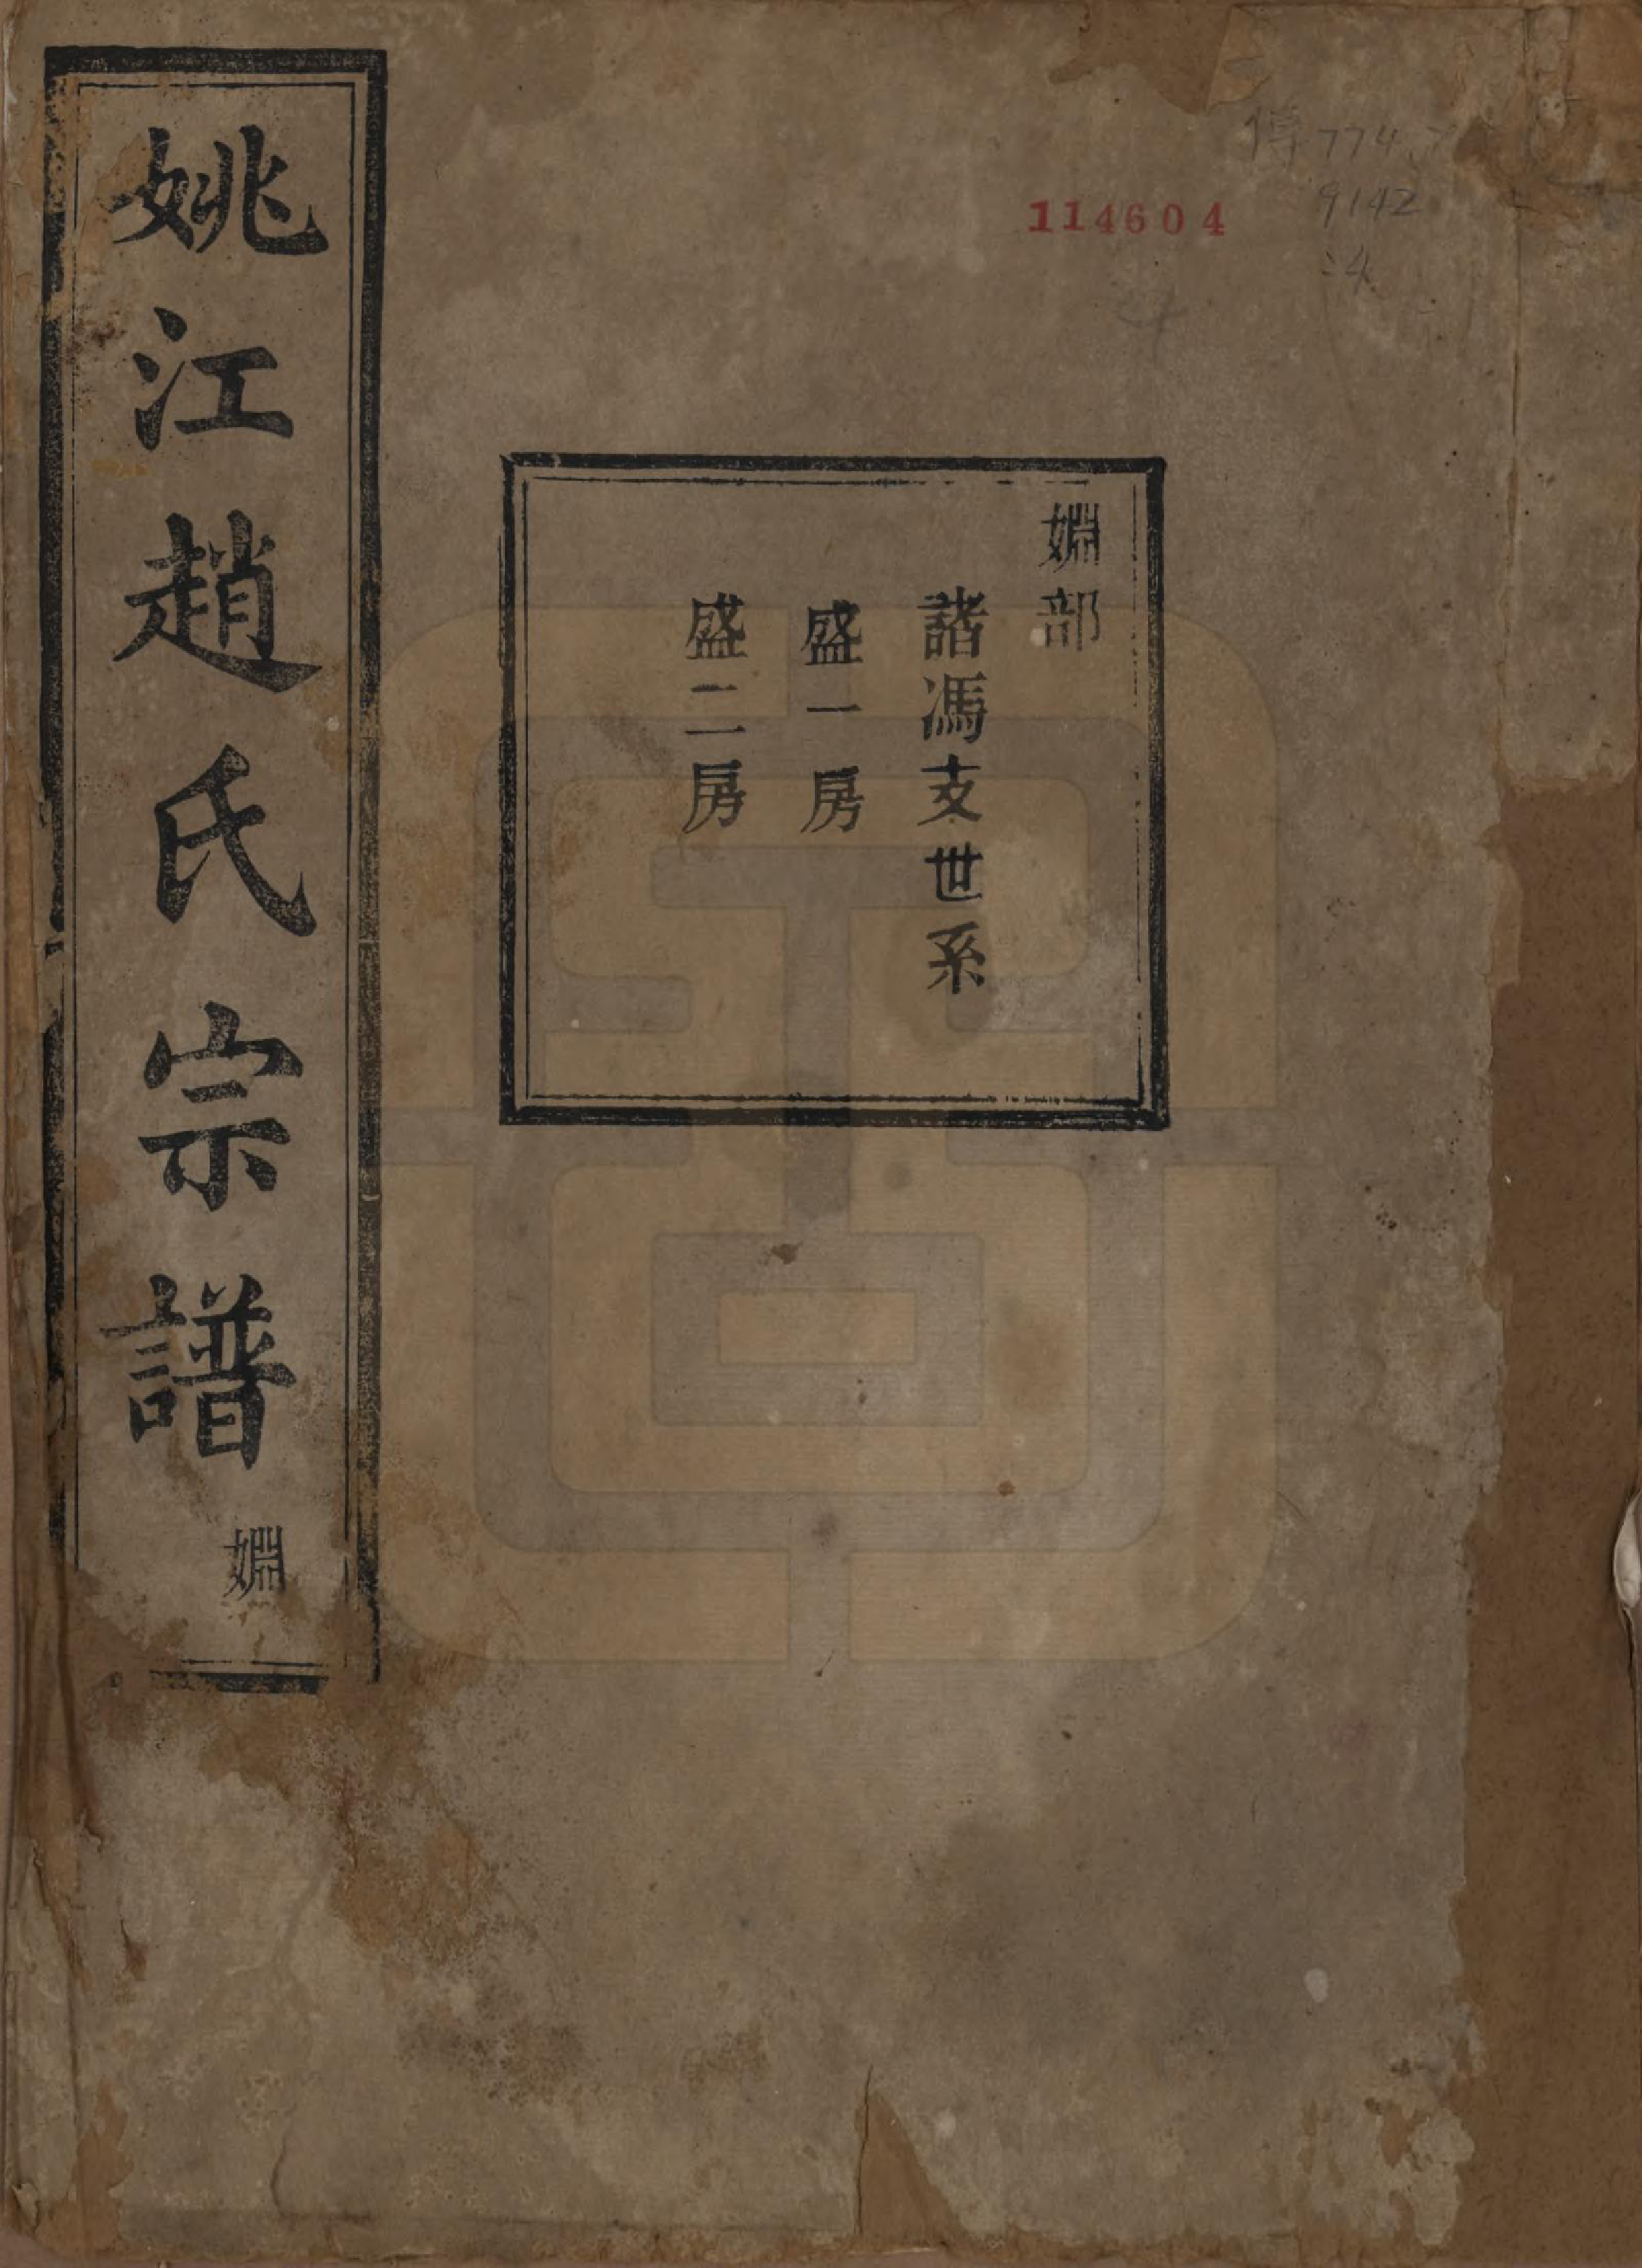 姚江趙氏宗譜 婣
婣部
諸馮支世系
盛一房
盛二房
114604
傳 774.7
9142
:4